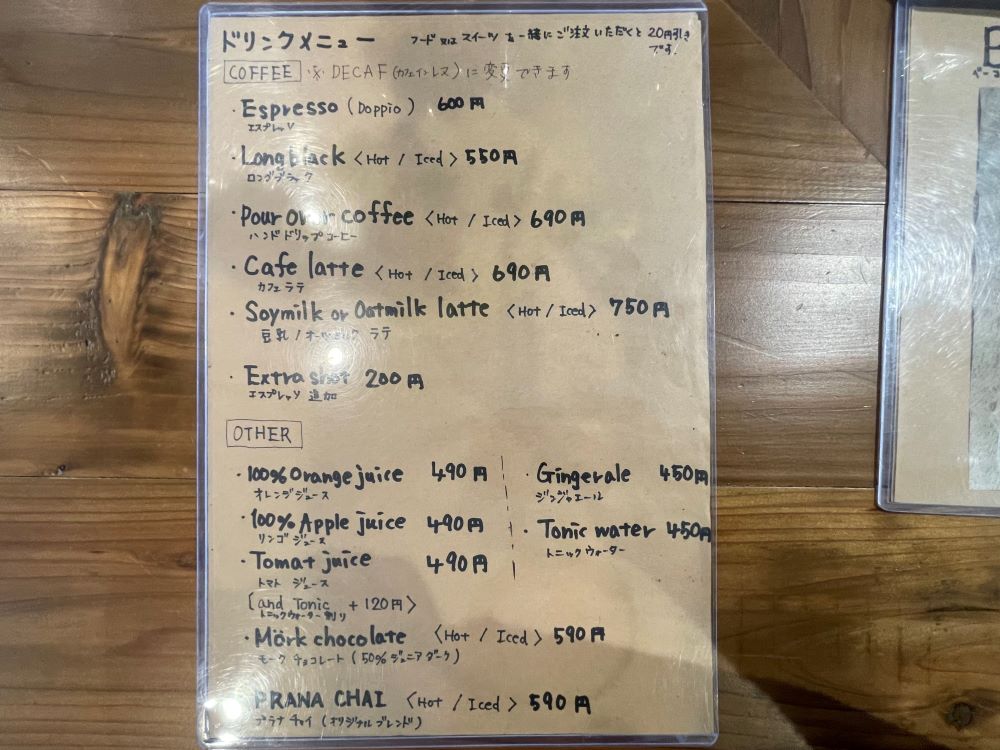 ドリンクメニュー フード又はスイーツを一緒にご注文いただくと20円引き
です!
COFFEE ※DECAF(カフェインレス)に変更できます
・Espresso (Doppio) 600円
エスプレッソ
・Long black <Hot / Iced> 550円
ロングブラック
・Pour over coffee <Hot / Iced> 690円
ハンドドリップコーヒー
・Cafe latte <Hot / Iced> 690円
カフェラテ
・Soymilk or Oatmilk latte <Hot / Iced> 750円
豆乳 / オーツミルク ラテ
・Extra shot 200円
エスプレッソ 追加
OTHER
・100% Orange juice 490円
オレンジジュース
・100% Apple juice 490円
リンゴジュース
・Tomat juice 490円
トマト ジュース
(and Tonic +120円>
トニックウォーター割り
・Ginger ale 450円
ジンジャエール
・Tonic water 450円
トニックウォーター
・Mörk chocolate <Hot / Iced> 590円
モーク チョコレート (50% ジュニアダーク)
・PRANA CHAI <Hot / Iced> 590円
プラナ チャイ (オリジナルブレンド)